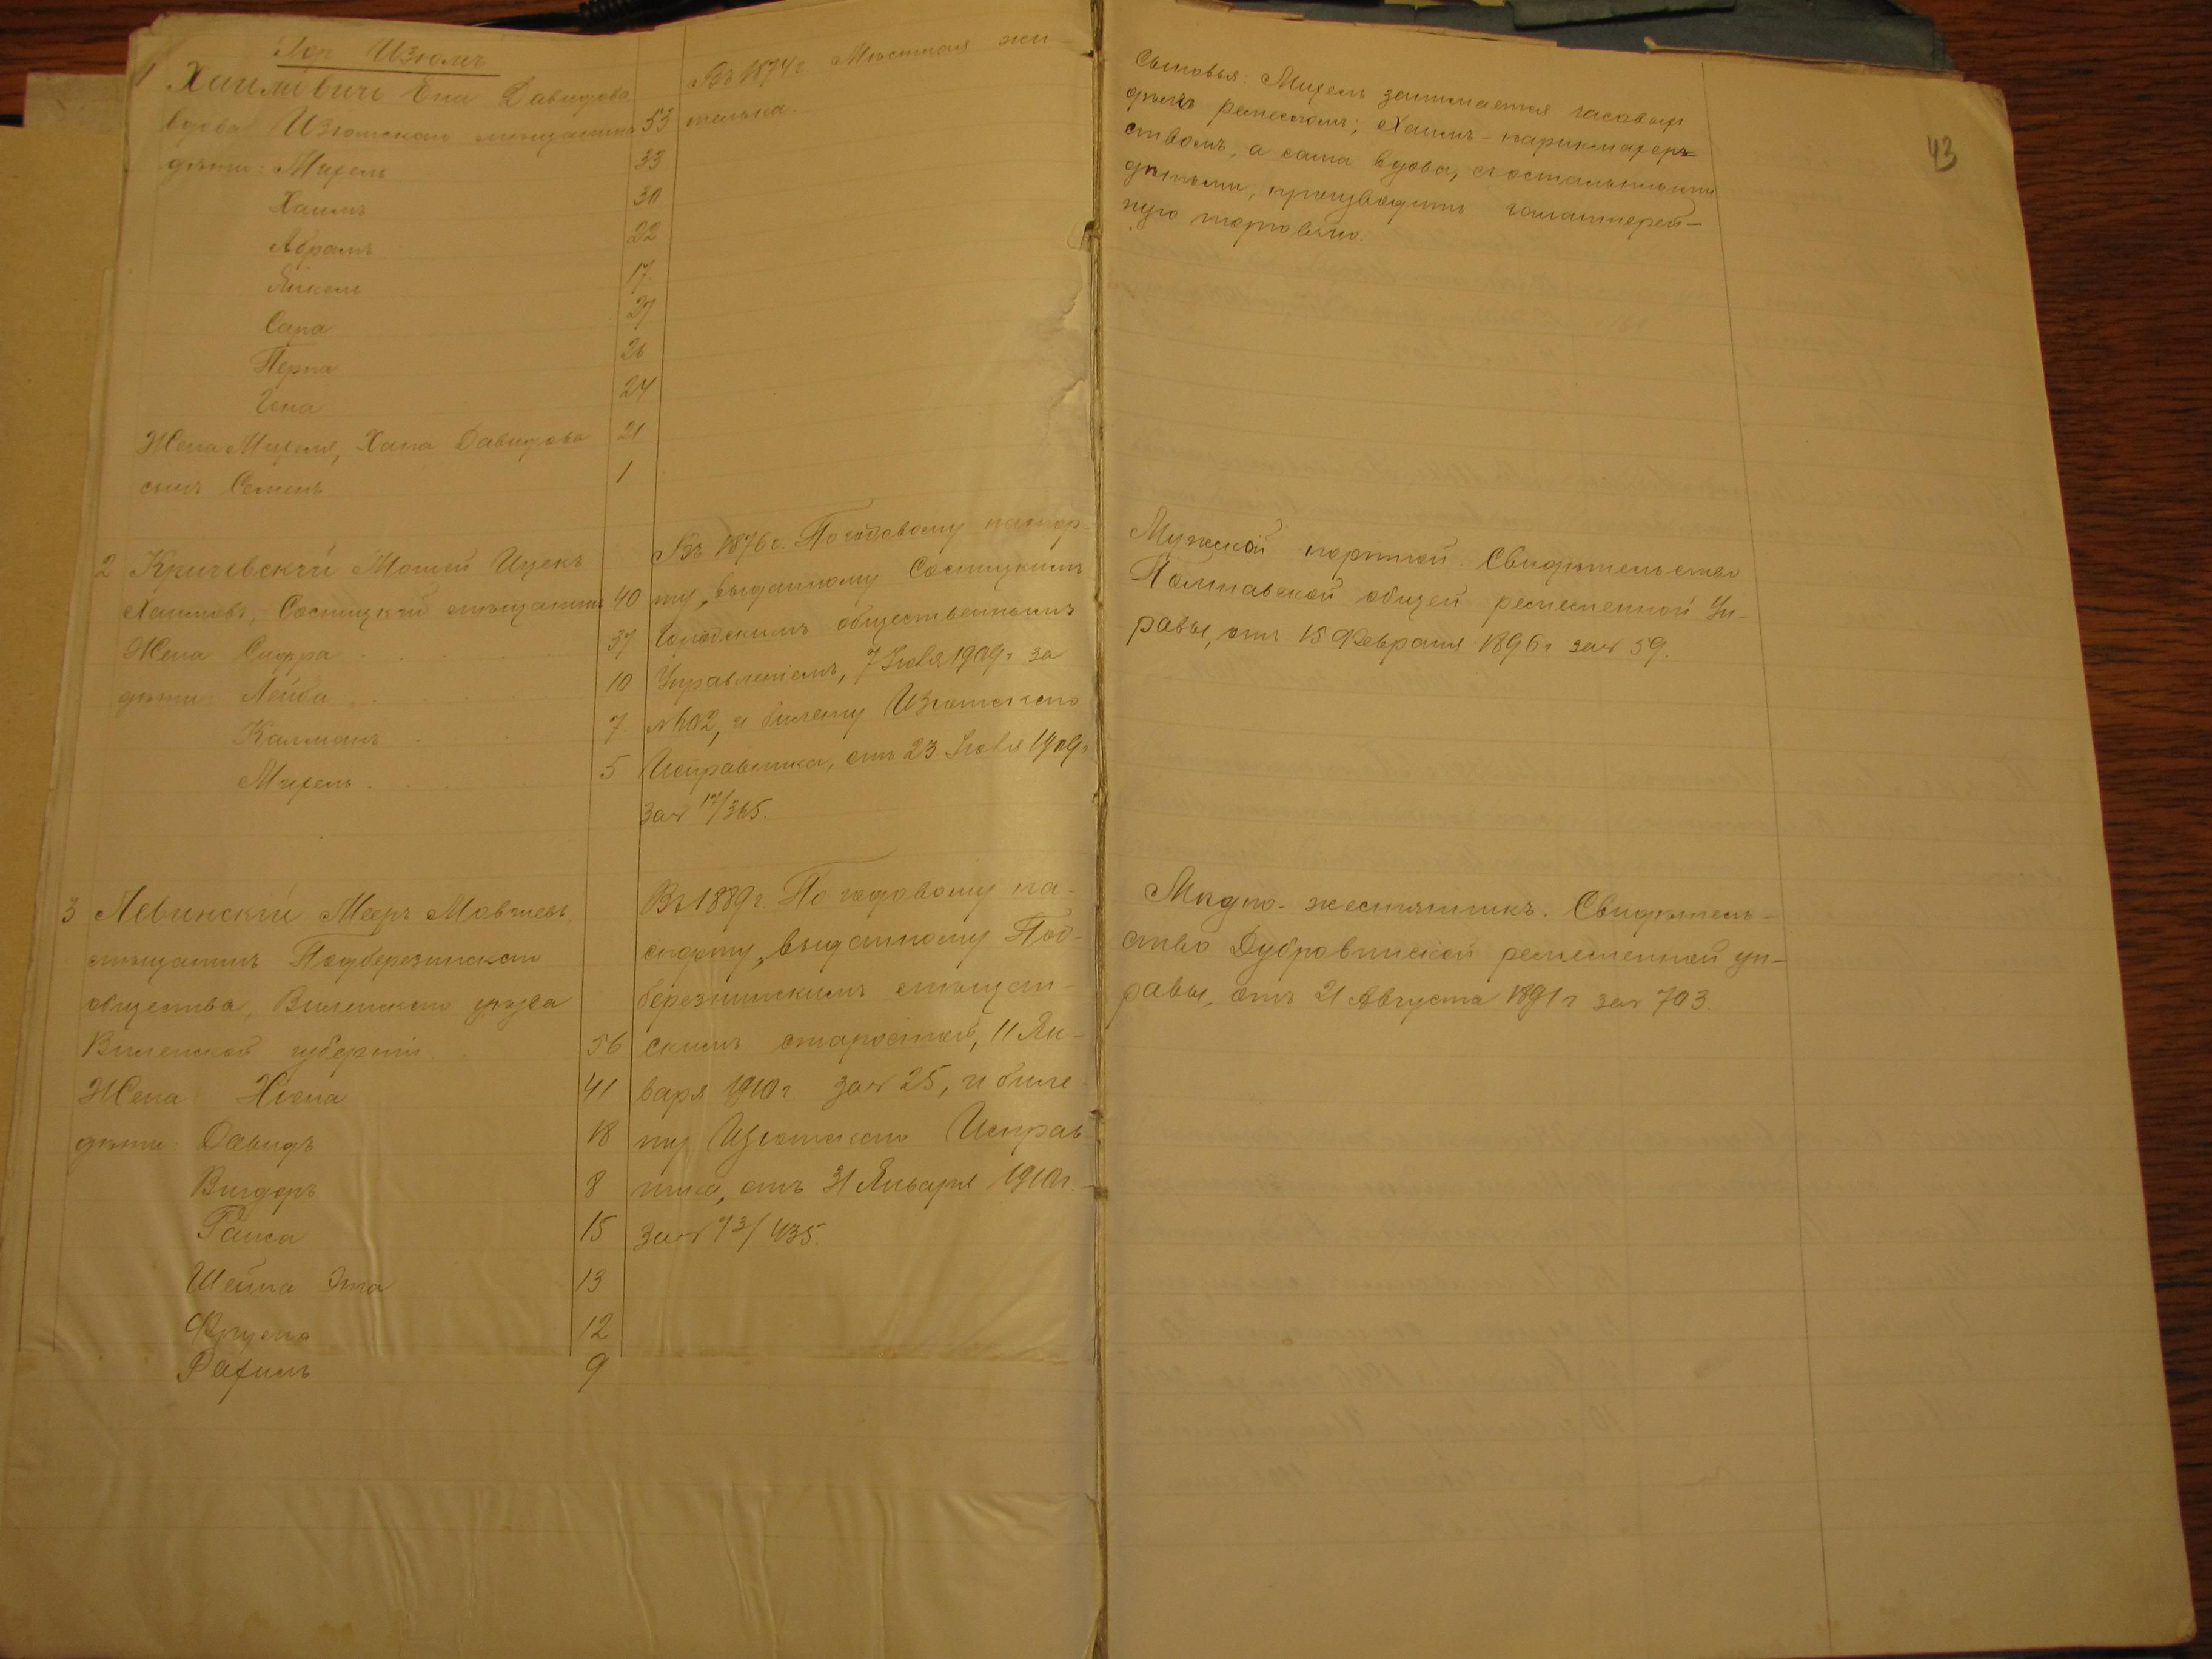 Гор. Изюмъ
1 Хаимовичъ Ена Давидова
вдова Изюмскаго мѣщанина 53
дѣти: Михель 33
Хаимъ 30
Абрамъ 22
Янкель 17
Сара 27
Перла 26
Гена 24
Жена Михеля, Хана Давидова 21
сынъ Семенъ 1
Въ 1874 г. Мѣстная жи-
телька.
Сыновья: Михель занимается часовым
ремесломъ; Хаимъ - парикмахер-
ствомъ, а сама вдова, съ остальными
дѣтьми, производитъ галантерей-
ную торговлю.
43
2 Кричевскій Мошей Ицекъ
Хаимовъ, Сосницкій мѣщанинъ 40
Жена Сифра 37
дѣти: Лейба 10
Калманъ 7
Михель 5
Въ 1876 г. По годовому паспор-
ту, выданному Сосницкимъ
Городскимъ общественнымъ
Управленіемъ, 7 Іюля 1909 г. за
№ 102, и билету Изюмскаго
Исправника, отъ 23 Іюля 1909 г.
за № /365.
Мужской портной. Свидѣтельство
Полтавской общей ремесленной Уп-
равы, отъ 15 Февраля 1896 г. за № 59.
3 Левинскій Мееръ Мовшевъ,
мѣщанинъ Подберезинскаго
общества, Виленскаго уѣзда
Виленской губерніи 56
Жена 41
дѣти: Давидъ 18
Вигдоръ 8
Раиса 15
Шейна Эта 13
Фрума 12
Рахиль 9
Въ 1889 г. По годовому па-
спорту, выданному Под-
березинскимъ мѣщан-
скимъ старостой, 11 Ян-
варя 1910 г. за № 25, и биле-
ту Изюмскаго Исправ-
ника, отъ 31 Января 1910 г.
за № 73/435.
Мѣдно-жестяникъ. Свидѣтель-
ство Дубровинской ремесленной уп-
равы, отъ 21 Августа 1891 г. за № 703.